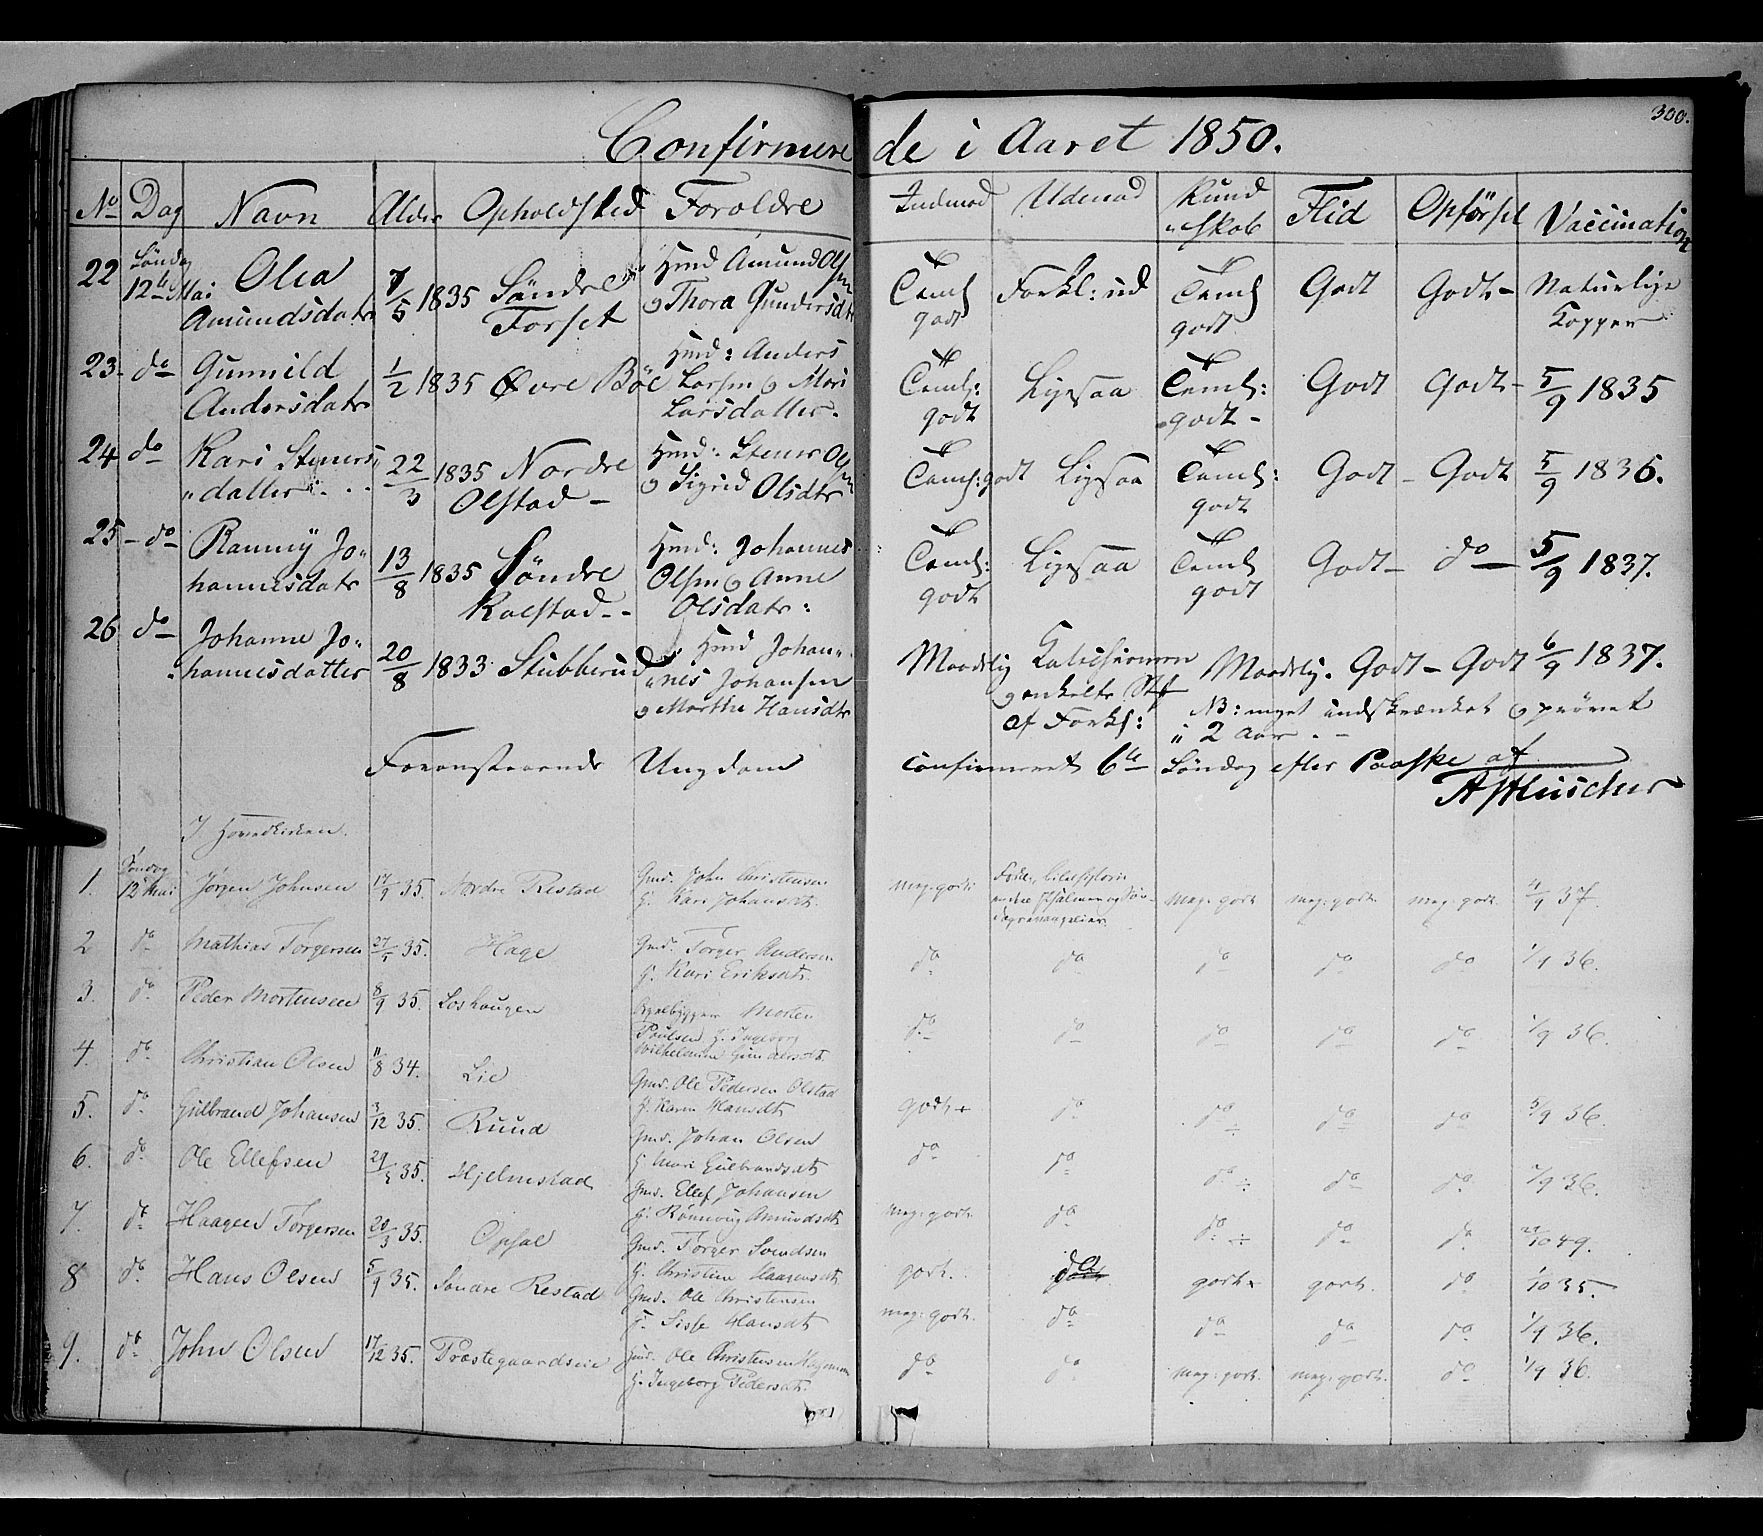 300.
Confirmerede i Aaret 1850.
No Dag Navn Alder Opholdsted Foreldre Indenad Udenad Kundskab Flid Opförsel Vaccination
22 Söndag 12te Mai Olia Amundsdatr 7/5 1835 Söndre Forset Hmd Amund Olsen og Thora Gundersdtr Teml godt Forkl: ud Teml godt Godt Godt- Naturlige Kopper
23- do Gunnild Andersdatr 1/2 1835 Øvre Böe Hmd: Anders Larsen og Mari Larsdatter. Teml: godt Ligesaa Teml: godt- Godt Godt- 5/9 1835
24 do Kari Stenersdatter 22/3 1835 Nordre Olstad- Hmd: Stener Olsen og Sigrid Olsdtr Teml: godt Ligesaa Teml: godt Godt- Godt 5/9 1836.
25- do Ranniy Johannesdatr 13/8 1835 Söndre Kalstad-- Hmd: Johannes Olsen og Anne Olsdatr: Teml: godt Ligesaa Teml godt Godt- do 5/9 1837.
26 do Johanne Johannesdatter 20/8 1833 Stubberud Hmd Johannes Johansen og Marthe Hansdtr Maadelig Katechismen og enkelte St af Forkl: Maadelig. Godt- Godt 6/9 1837.
NB: meget indskrænket og prövet i 2 Aar.-
Foranstaaende Ungdom confirmeret 6te Söndag efter Paaske af
I Hovedkirken.
1. Söndag 12 Mai Jörgen Johnsen 17/9 35. Nordre Restad Gmd. John Christensen G. Kari Johansdt. meg: godt Forkl., Bibelhistorie endeel Psalmer og Söndagsevangelier meg: godt meg: godt. meg: godt. 4/9 37.
2 do Mathias Torgersen 35. Hage Gmd. Torger Andersen G. Kari Eriksdt. do do do do do 1/9 36.
3. do Peder Mortensen 8/9 35. Loshaugen Orgelbygger Morten Poulsen G. Ingeborg Wilhelmine Gundersdt. do do do do do 1/9 36.
4. do Christian Olsen 11/8 34. Lie Gmd. Ole Pedersen Olstad G. Karen Hansdt. godt+ do do ÷ do do 5/9 36.
5. do Gulbrand Johansen 3/12 35. Ruud Gmd. Johan Olsen G. Mari Gulbrandsdt do do do ÷ do do 1/9 36.
6. do Ole Ellefsen 35. Hjelmstad Gmd. Ellef Johansen G. Rönnoug Amundsdt meg: godt. do do ÷ do do 10 49.
7. do Haagen Torgersen 20/3 35. Opsal Gmd. Torger Svendsen G. Christine Haagensdt godt. do godt+ godt. do 1/10 35.
8 do Hans Olsen 5/9 35. Söndre Restad Gmd. Ole Christensen G. Sisse Hansdt meg: godt. do do do do 1/9 36.
9. do John Olsen 17/12 35. Præstegaardseie Gmd. Ole Christensen G. Ingeborg Pedersdt. do do meg: godt. meg: godt. do 1/9 36.